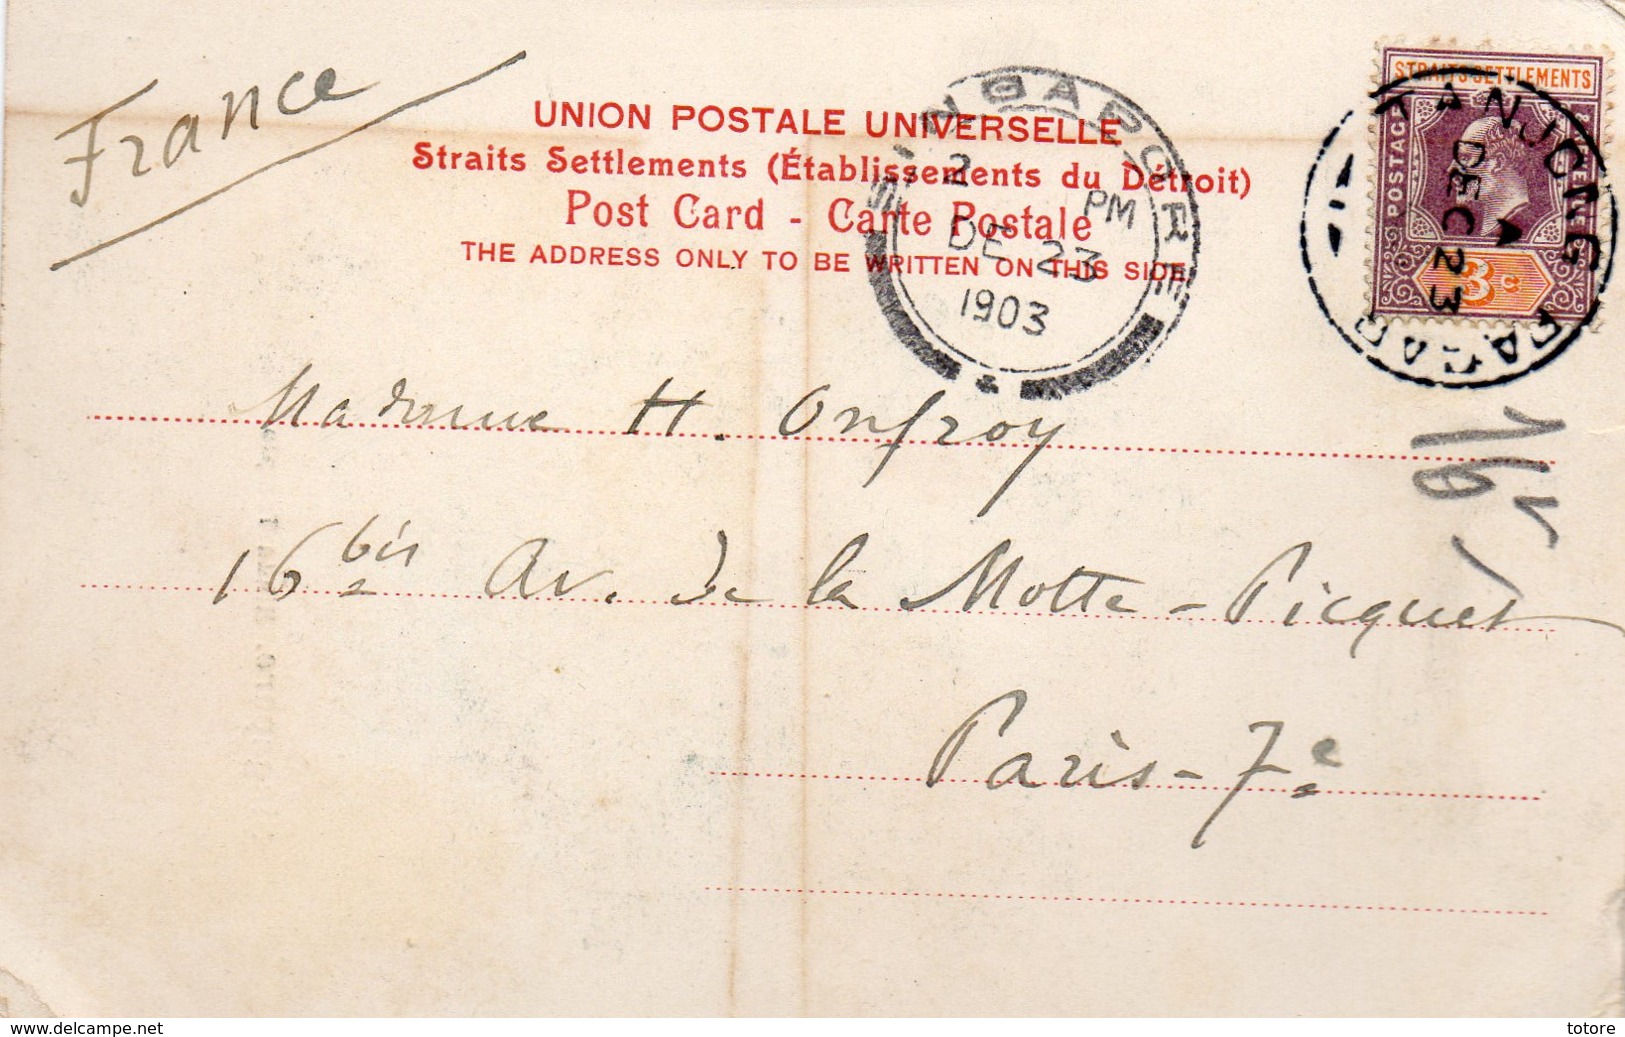 France
UNION POSTALE UNIVERSELLE
Straits Settlements (Établissements du Détroit)
Post Card - Carte Postale
THE ADDRESS ONLY TO BE WRITTEN ON THIS SIDE
SINGAPORE
2 PM
DE 23
1903
STRAITS SETTLEMENTS
POSTAGE
REVENUE
3 c
TANJONG PAGAR
A
DEC 23
Madame H. Onfroy
16 bis Av. de la Motte-Picquet
Paris-7e
www.delcampe.net
totore